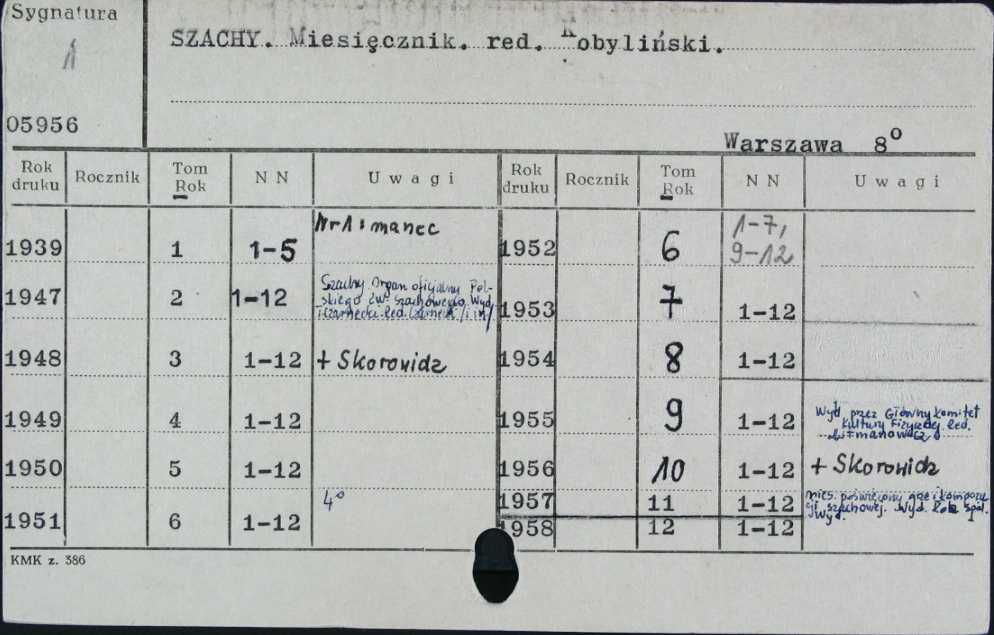 Sygnatura
1
SZACHY. Miesięcznik. red. Kobyliński.
05956
Warszawa 8º
Rok druku Rocznik Tom Rok N N Uwagi Rok druku Rocznik Tom Rok N N Uwagi
1939 1 1-5 Nr 1: marzec 1952 6 1-7, 9-12
1947 2 1-12 Szachy. Organ oficjalny Pol-
skiego Zw. Szachowego. Wyd.
Czarnecki. Red. Czarnecki /i in/
1953 7 1-12
1948 3 1-12 + Skorowidz 1954 8 1-12
1949 4 1-12 1955 9 1-12 Wyd. przez Główny Komitet
Kultury Fizycznej. Red.
1950 5 1-12 1956 10 1-12 + Skorowidz
1951 6 1-12 4º 1957 11 1-12 mies. poświęcony grze i kompozy-
cji szachowej. Wyd.
Wyd.
1958 12 1-12
KMK z. 386